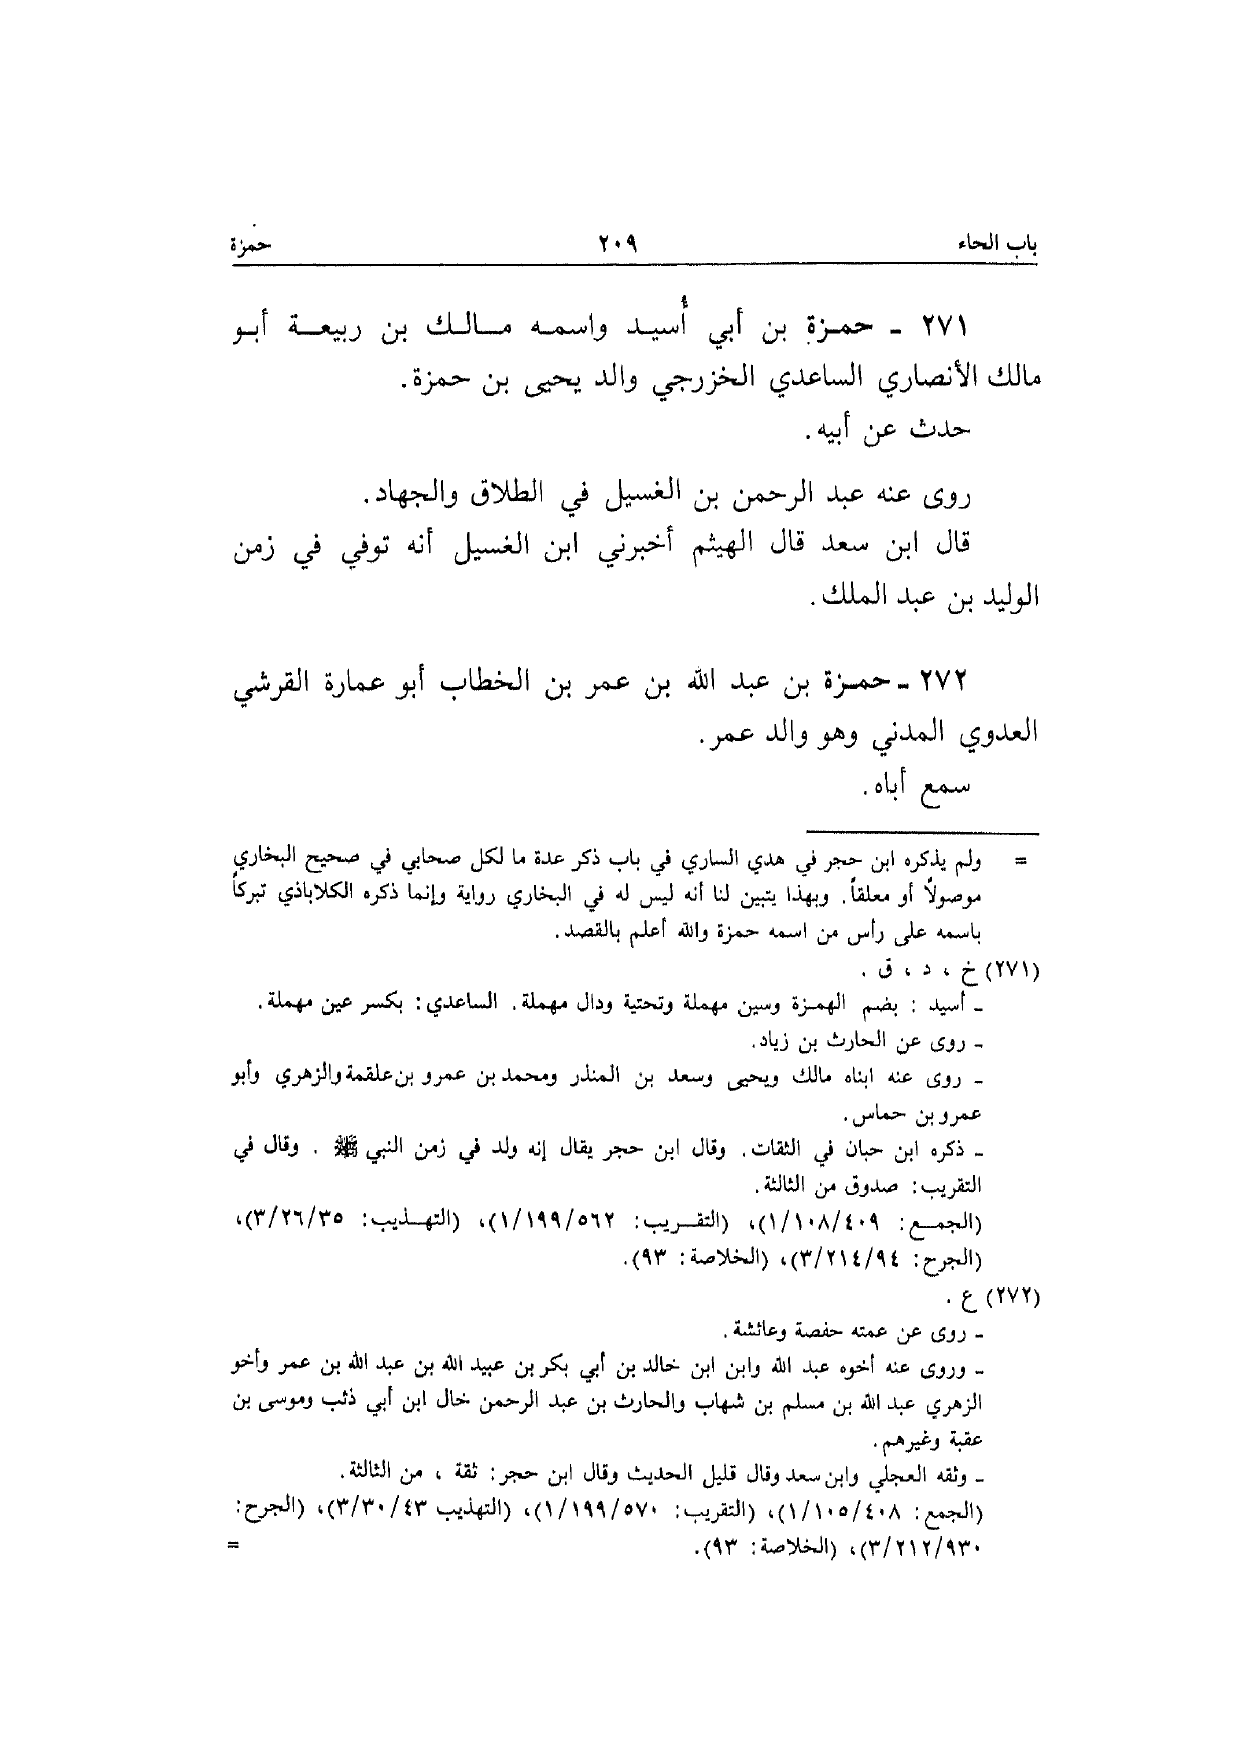 باب الحاء ٢٠٩ حمزة
٢٧١ ـ حمزة بن أبي أُسيد واسمه مالك بن ربيعة أبو
مالك الأنصاري الساعدي الخزرجي والد يحيى بن حمزة.
حدث عن أبيه.
روى عنه عبد الرحمن بن الغسيل في الطلاق والجهاد.
قال ابن سعد قال الهيثم أخبرني ابن الغسيل أنه توفي في زمن
الوليد بن عبد الملك.
٢٧٢ ـ حمزة بن عبد الله بن عمر بن الخطاب أبو عمارة القرشي
العدوي المدني وهو والد عمر.
سمع أباه.
= ولم يذكره ابن حجر في هدي الساري في باب ذكر عدة ما لكل صحابي في صحيح البخاري
موصولاً أو معلقاً. وبهذا يتبين لنا أنه ليس له في البخاري رواية وإنما ذكره الكلاباذي تبركاً
باسمه على رأس من اسمه حمزة والله أعلم بالقصد.
(٢٧١) خ ، د ، ق .
ـ أسيد : بضم الهمزة وسين مهملة وتحتية ودال مهملة. الساعدي: بكسر عين مهملة.
ـ روى عن الحارث بن زياد.
ـ روى عنه ابناه مالك ويحيى وسعد بن المنذر ومحمد بن عمرو بن علقمة والزهري وأبو
عمرو بن حماس.
ـ ذكره ابن حبان في الثقات. وقال ابن حجر يقال إنه ولد في زمن النبي ﷺ . وقال في
التقريب: صدوق من الثالثة.
(الجمع: ١/١٠٨/٤٠٩)، (التقريب: ١/١٩٩/٥٦٢)، (التهذيب: ٣/٢٦/٣٥)،
(الجرح: ٣/٢١٤/٩٤)، (الخلاصة: ٩٣).
(٢٧٢) ع .
ـ روى عن عمته حفصة وعائشة.
ـ وروى عنه أخوه عبد الله وابن ابن خالد بن أبي بكر بن عبيد الله بن عبد الله بن عمر وأخو
الزهري عبد الله بن مسلم بن شهاب والحارث بن عبد الرحمن خال ابن أبي ذئب وموسى بن
عقبة وغيرهم.
ـ وثقه العجلي وابن سعد وقال قليل الحديث وقال ابن حجر: ثقة ، من الثالثة.
(الجمع: ١/١٠٥/٤٠٨)، (التقريب: ١/١٩٩/٥٧٠)، (التهذيب ٣/٣٠/٤٣)، (الجرح:
٣/٢١٢/٩٣٠)، (الخلاصة: ٩٣). =